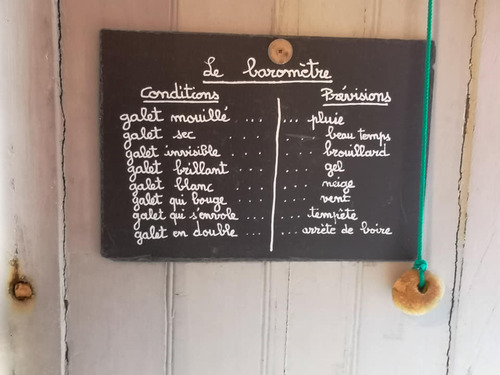 Le baromètre
Conditions Prévisions
galet mouillé .... ... pluie
galet sec .... ... beau temps
galet invisible .... ... brouillard
galet brillant .... ... gel
galet blanc .... ... neige
galet qui bouge .... ... vent
galet qui s'envole .... ... tempête
galet en double .... ... arrête de boire